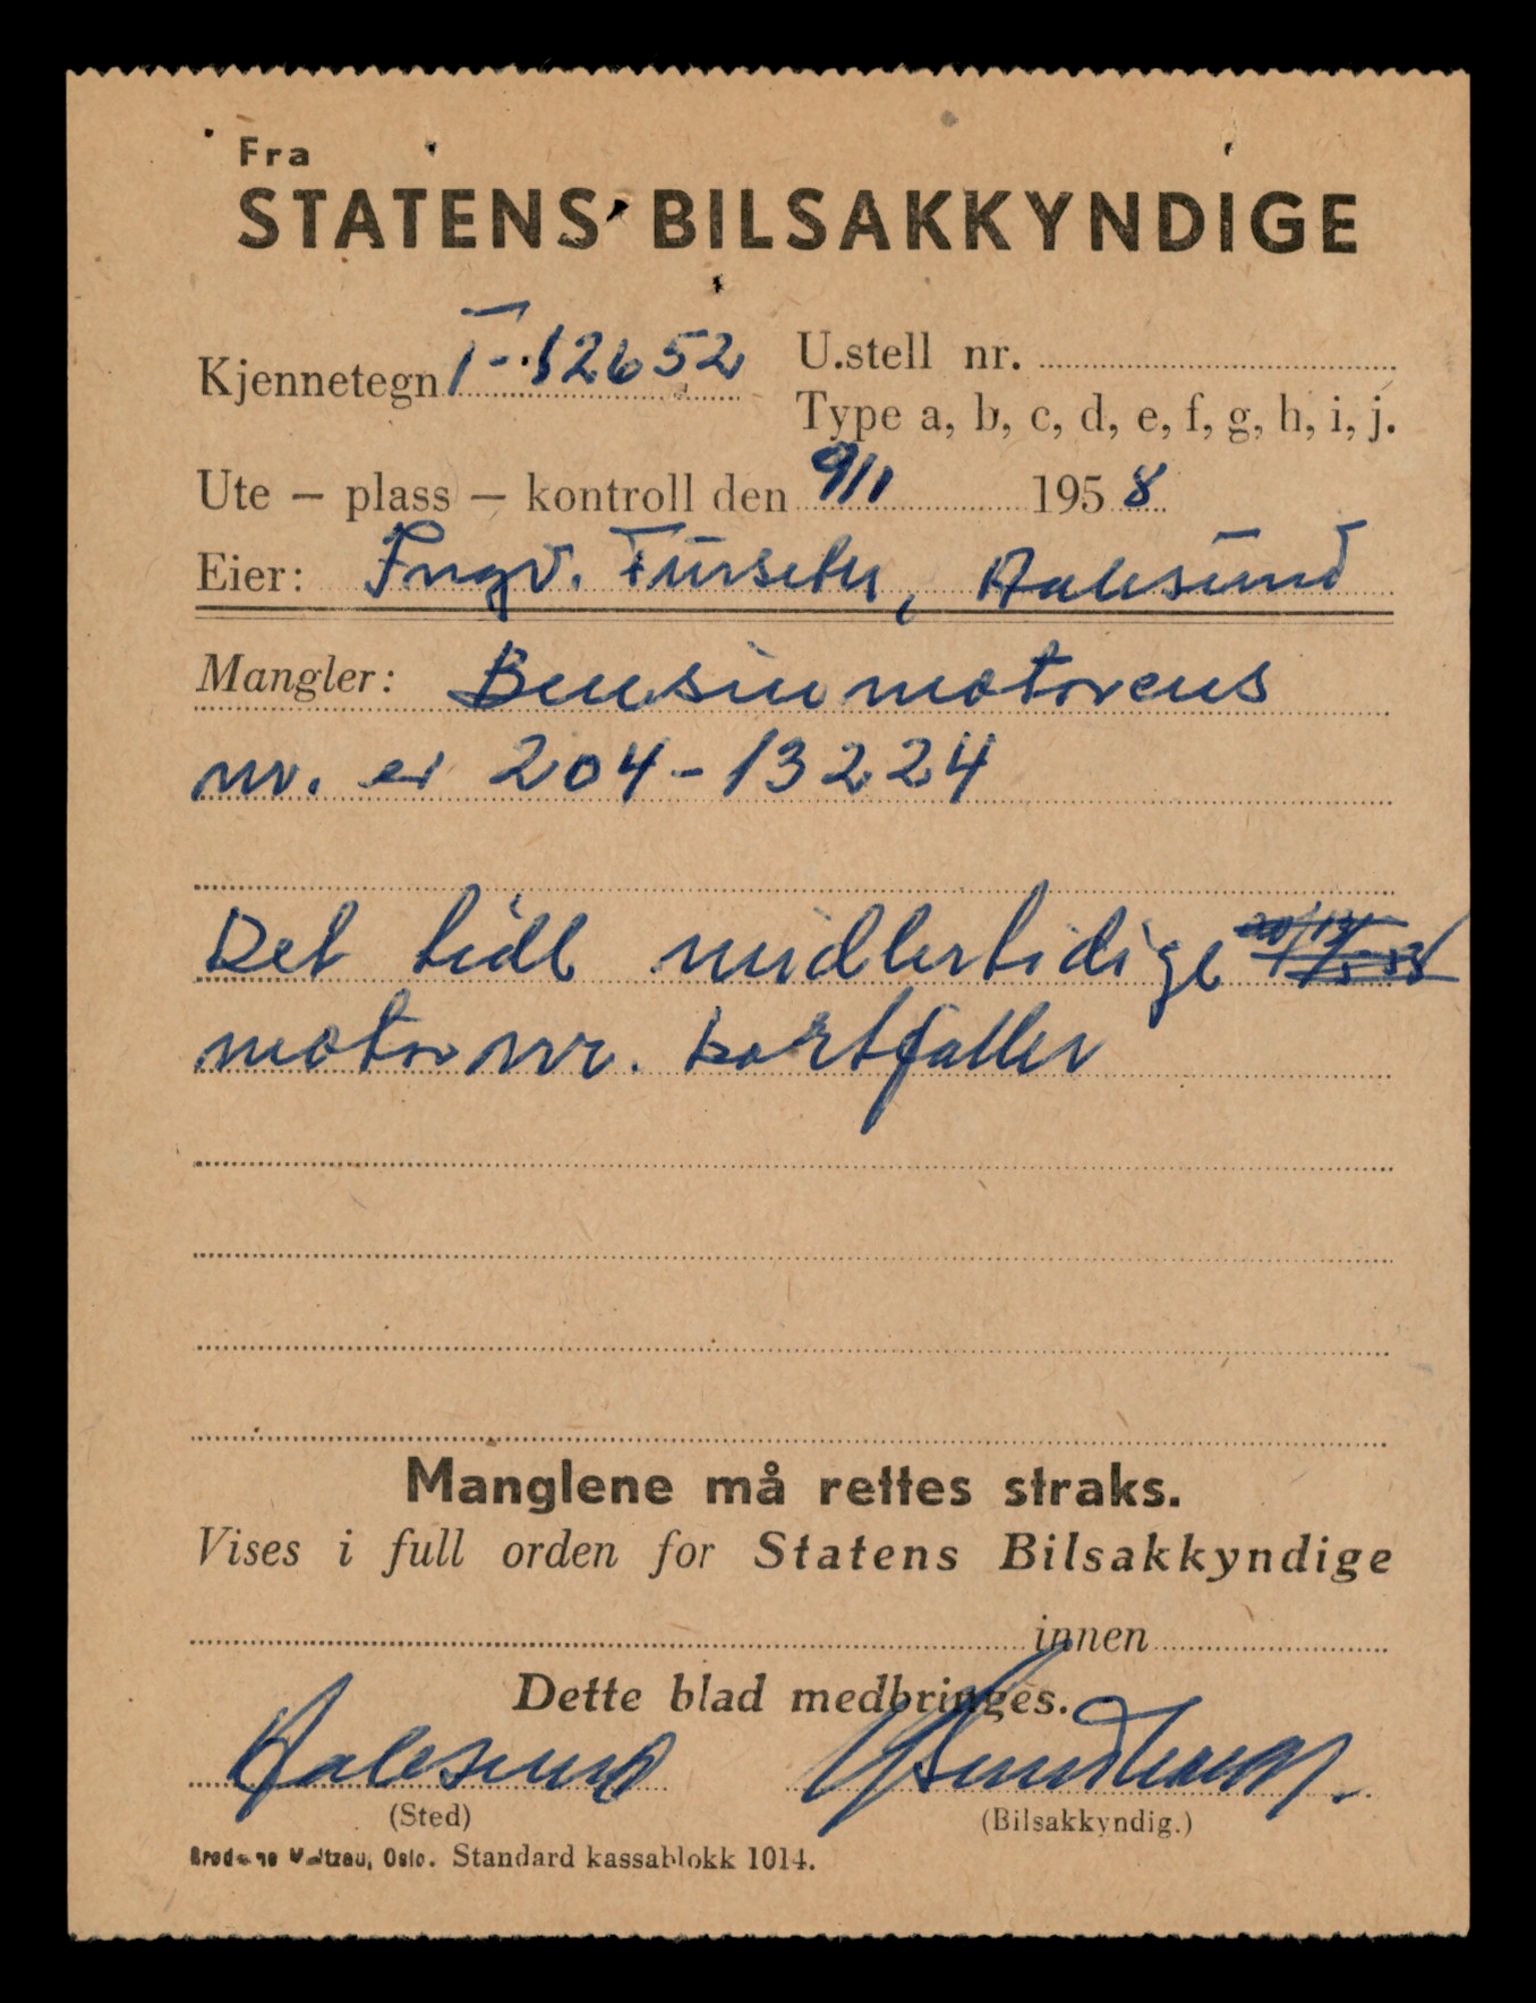 Fra
STATENS BILSAKKYNDIGE
Kjennetegn T-12652
U.stell nr.
Type a, b, c, d, e, f, g, h, i, j.
Ute – plass – kontroll den 9/1 1958
Eier: Ingv. Furseth, Aalesund
Mangler: Bensinmotorens
nr. er 204-13224
Det tidl midlertidige
motor nr. bortfaller
Manglene må rettes straks.
Vises i full orden for Statens Bilsakkyndige
innen
Dette blad medbringes.
Aalesund
(Sted)
(Bilsakkyndig.)
Oslo. Standard kassablokk 1014.